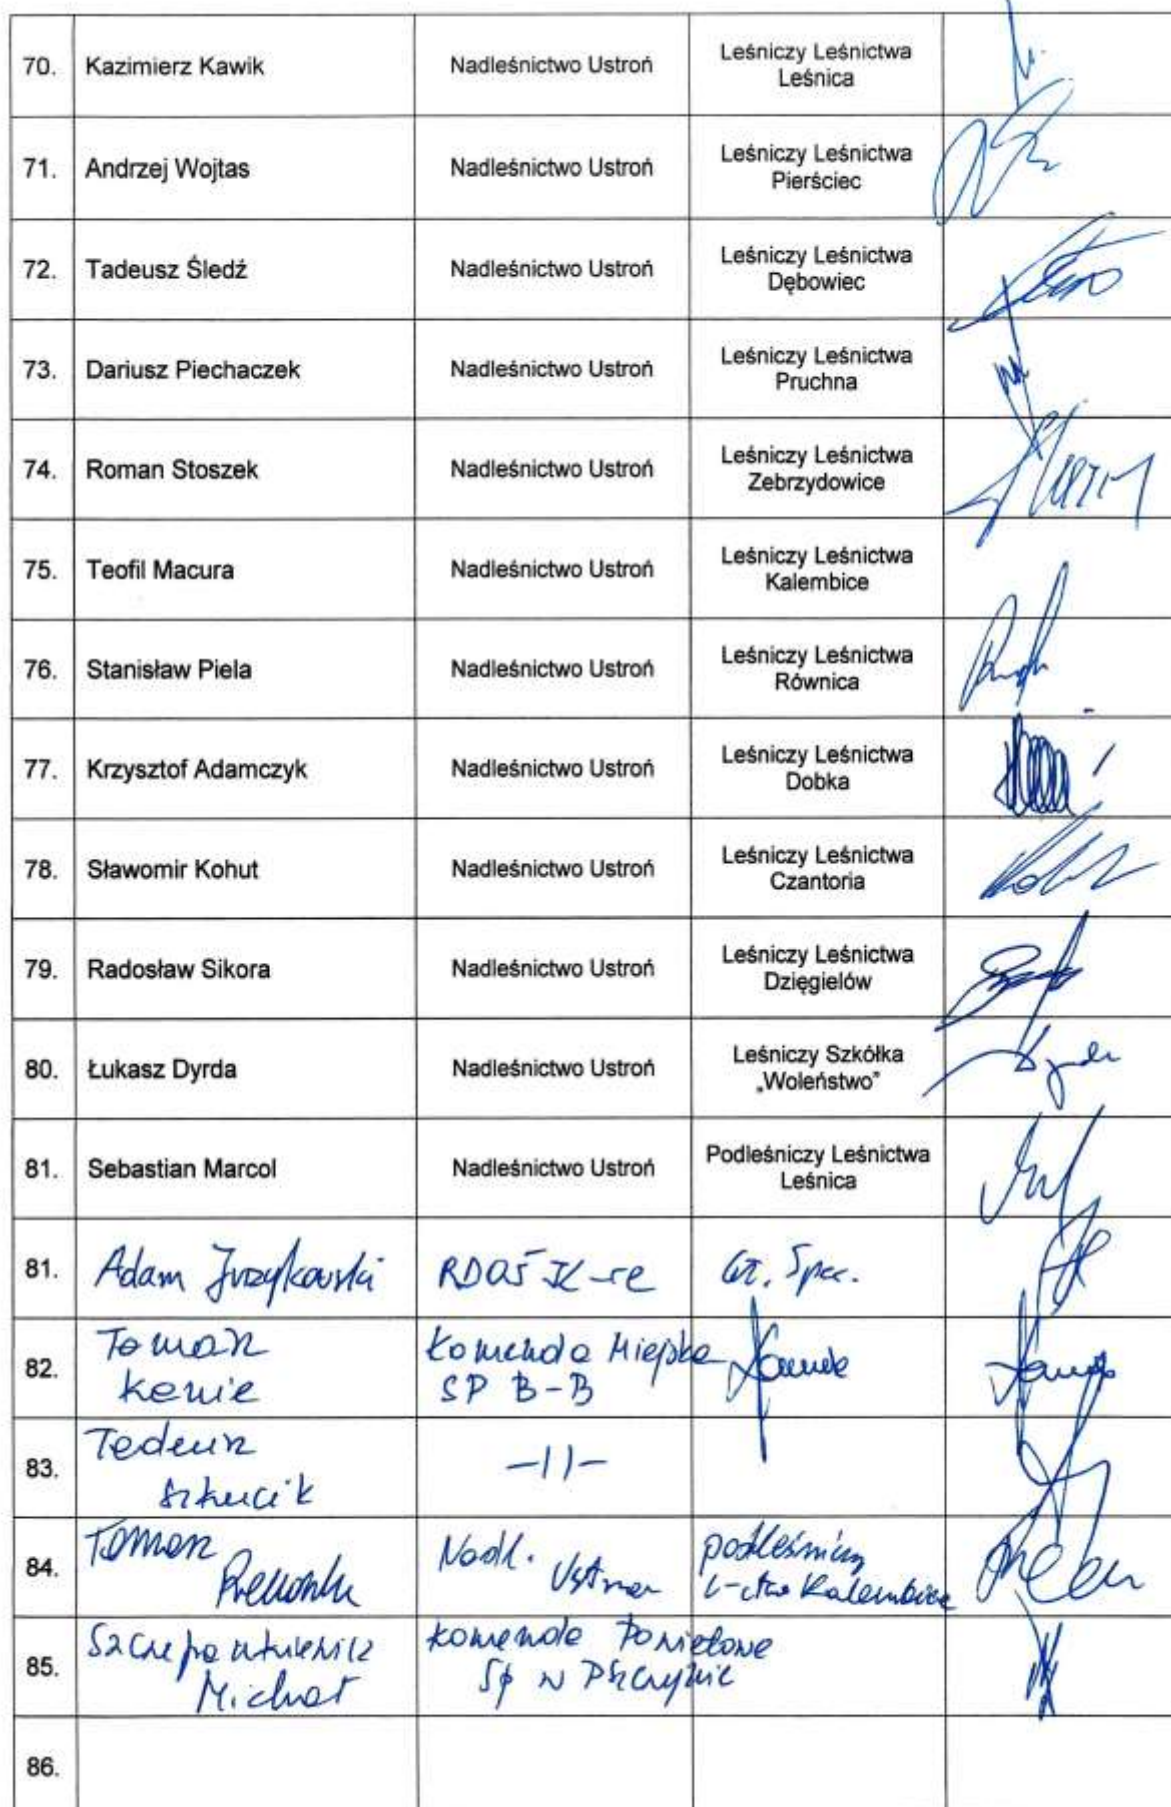 70. Kazimierz Kawik Nadleśnictwo Ustroń Leśniczy Leśnictwa
Leśnica
71. Andrzej Wojtas Nadleśnictwo Ustroń Leśniczy Leśnictwa
Pierściec
72. Tadeusz Śledź Nadleśnictwo Ustroń Leśniczy Leśnictwa
Dębowiec
73. Dariusz Piechaczek Nadleśnictwo Ustroń Leśniczy Leśnictwa
Pruchna
74. Roman Stoszek Nadleśnictwo Ustroń Leśniczy Leśnictwa
Zebrzydowice
75. Teofil Macura Nadleśnictwo Ustroń Leśniczy Leśnictwa
Kalembice
76. Stanisław Piela Nadleśnictwo Ustroń Leśniczy Leśnictwa
Równica
77. Krzysztof Adamczyk Nadleśnictwo Ustroń Leśniczy Leśnictwa
Dobka
78. Sławomir Kohut Nadleśnictwo Ustroń Leśniczy Leśnictwa
Czantoria
79. Radosław Sikora Nadleśnictwo Ustroń Leśniczy Leśnictwa
Dzięgielów
80. Łukasz Dyrda Nadleśnictwo Ustroń Leśniczy Szkółka
„Woleństwo”
81. Sebastian Marcol Nadleśnictwo Ustroń Podleśniczy Leśnictwa
Leśnica
81. Adam RDOŚ
82. Tomasz Komenda Miejska
SP B-B
83. Tadeusz -11-
84. Tomasz Nadl. podleśniczy
L-ctwo Kalembice
85. Komenda Powiatowa
Michał SP w Pszczynie
86.